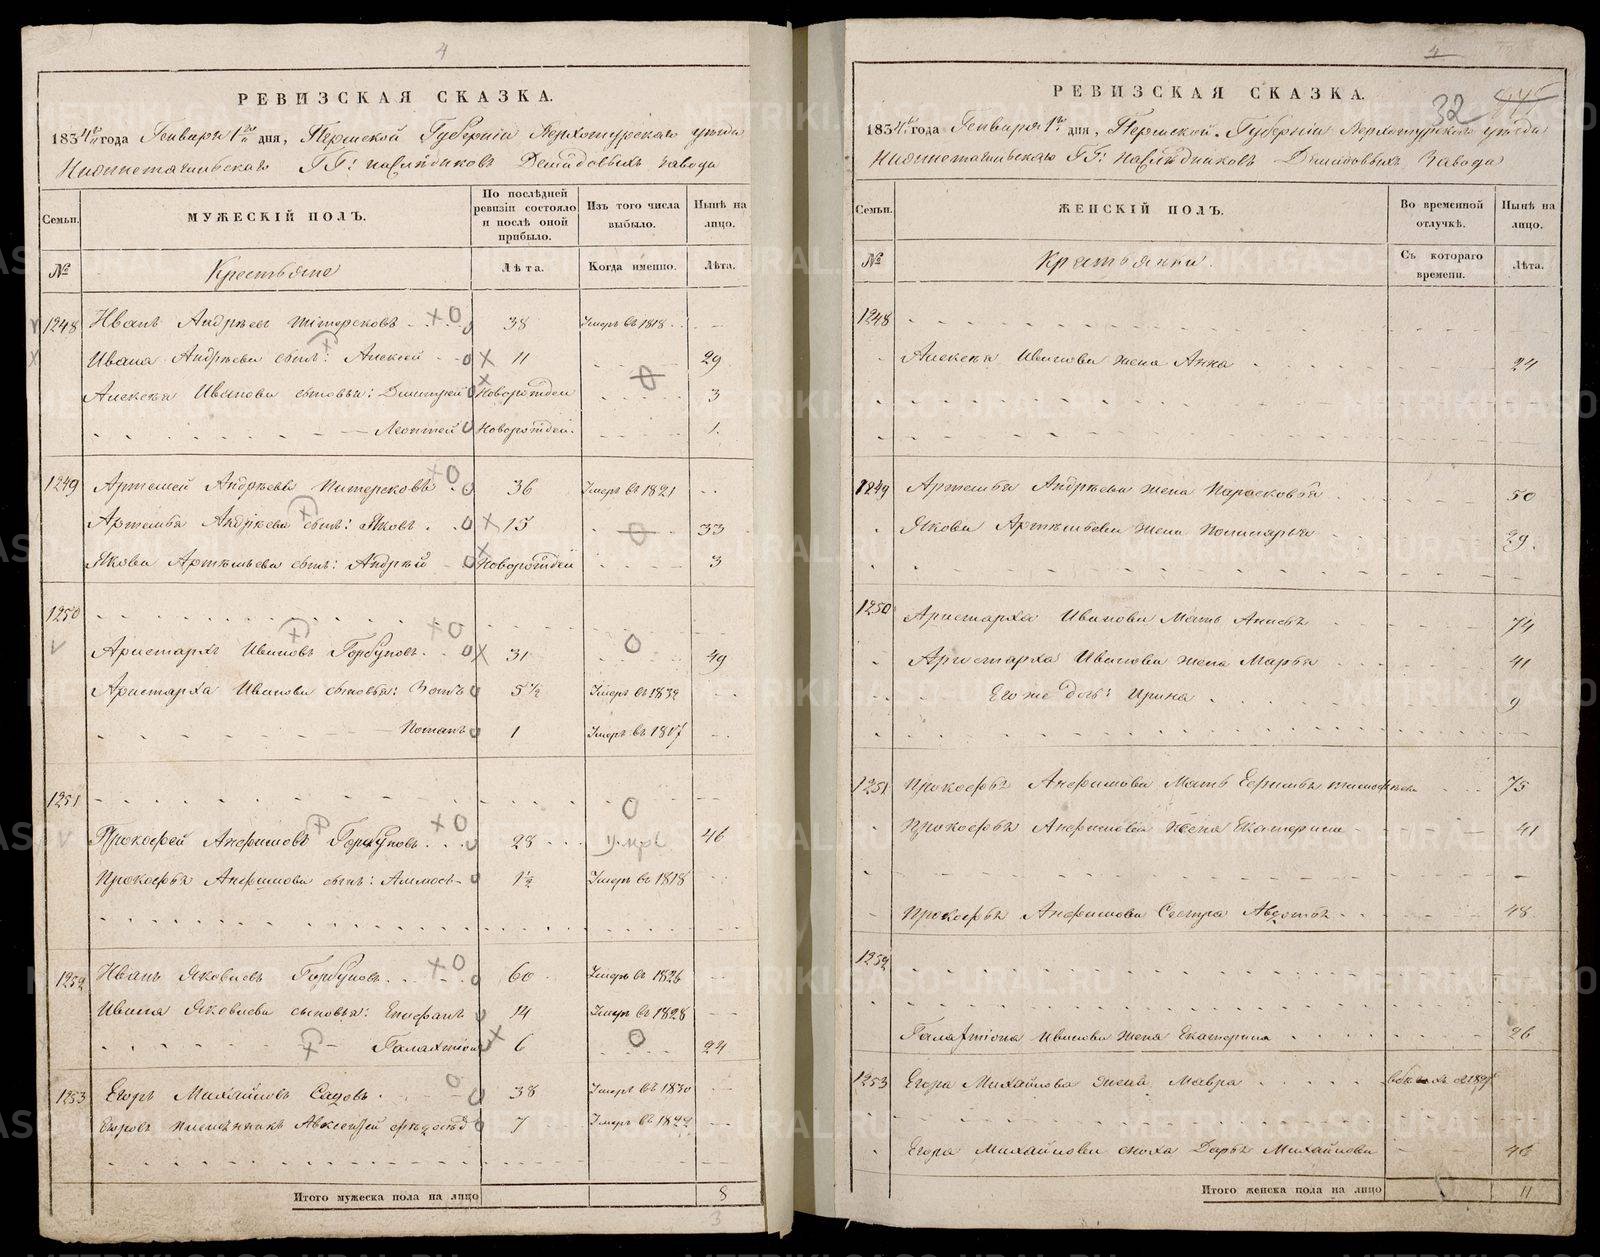 4
РЕВИЗСКАЯ СКАЗКА.
1834го года Генваря 1го дня, Пермской Губерніи Верхотурскаго уезда
Нижнетагильскаго ГГ: наследниковъ Демидовыхъ завода
Семьи. МУЖЕСКІЙ ПОЛЪ. По послѣдней ревизіи состояло и послѣ оной прибыло. Изъ того числа выбыло. Нынѣ на лицо.
№ Крестьяне Лѣта. Когда именно. Лѣта.
1248 Иванъ Андреевъ Питерсковъ 38 Умеръ въ 1818
Ивана Андреева сынъ: Алексей 11 29
Алексея Иванова сыновья: Дмитрей Новорожден 3
Леонтей Новорожден. 1.
1249 Артемей Андреевъ Питерсковъ 36 Умеръ въ 1821
Артемья Андреева сынъ: Яковъ 15 33
Якова Артемьева сынъ: Андрей Новорожден 3
1250
Аристархъ Ивановъ Горбуновъ 31 49
Аристарха Иванова сыновья: Зотъ 5½ Умеръ въ 1832
Потапъ 1 Умеръ въ 1817
1251
Прокофей Анфимовъ Горбуновъ 28 умре 46
Прокофья Анфимова сынъ: Аммосъ 1½ Умеръ въ 1818
1252 Иванъ Яковлевъ Горбуновъ 60 Умеръ въ 1826
Ивана Яковлева сыновья: Епифанъ 14 Умеръ въ 1828
Галактіонъ 6 24
1253 Егоръ Михайловъ 38 Умеръ въ 1830
Егоровъ племянникъ 7 Умеръ въ 1822
Итого мужеска пола на лицо 8
3
4
32
РЕВИЗСКАЯ СКАЗКА.
1834го года Генваря 1го дня, Пермской Губерніи Верхотурскаго уезда
Нижнетагильскаго ГГ: Наследниковъ Демидовыхъ Завода
Семьи. ЖЕНСКІЙ ПОЛЪ. Во временной отлучкѣ. Нынѣ на лицо.
№ Крестьянки. Съ котораго времени. Лѣта.
1248
Алексея Иванова жена Анна 24
1249 Артемья Андреева жена Парасковья 50
Якова Артемьева жена 39.
1250 Аристарха Иванова Мать Анисья 74
Аристарха Иванова жена Марья 41
Его же дочь: Ирина 9
1251 Прокофья Анфимова Мать 75
Прокофья Анфимова жена Екатерина 41
Прокофья Анфимова Сестра Авдотья 48
1252
Галактіона Иванова жена Екатерина 26
1253 Егора Михайлова жена Мавра
Егора Михайлова сноха Дарья Михайлова 46
Итого женска пола на лицо 11
METRIKI.GASO-URAL.RU